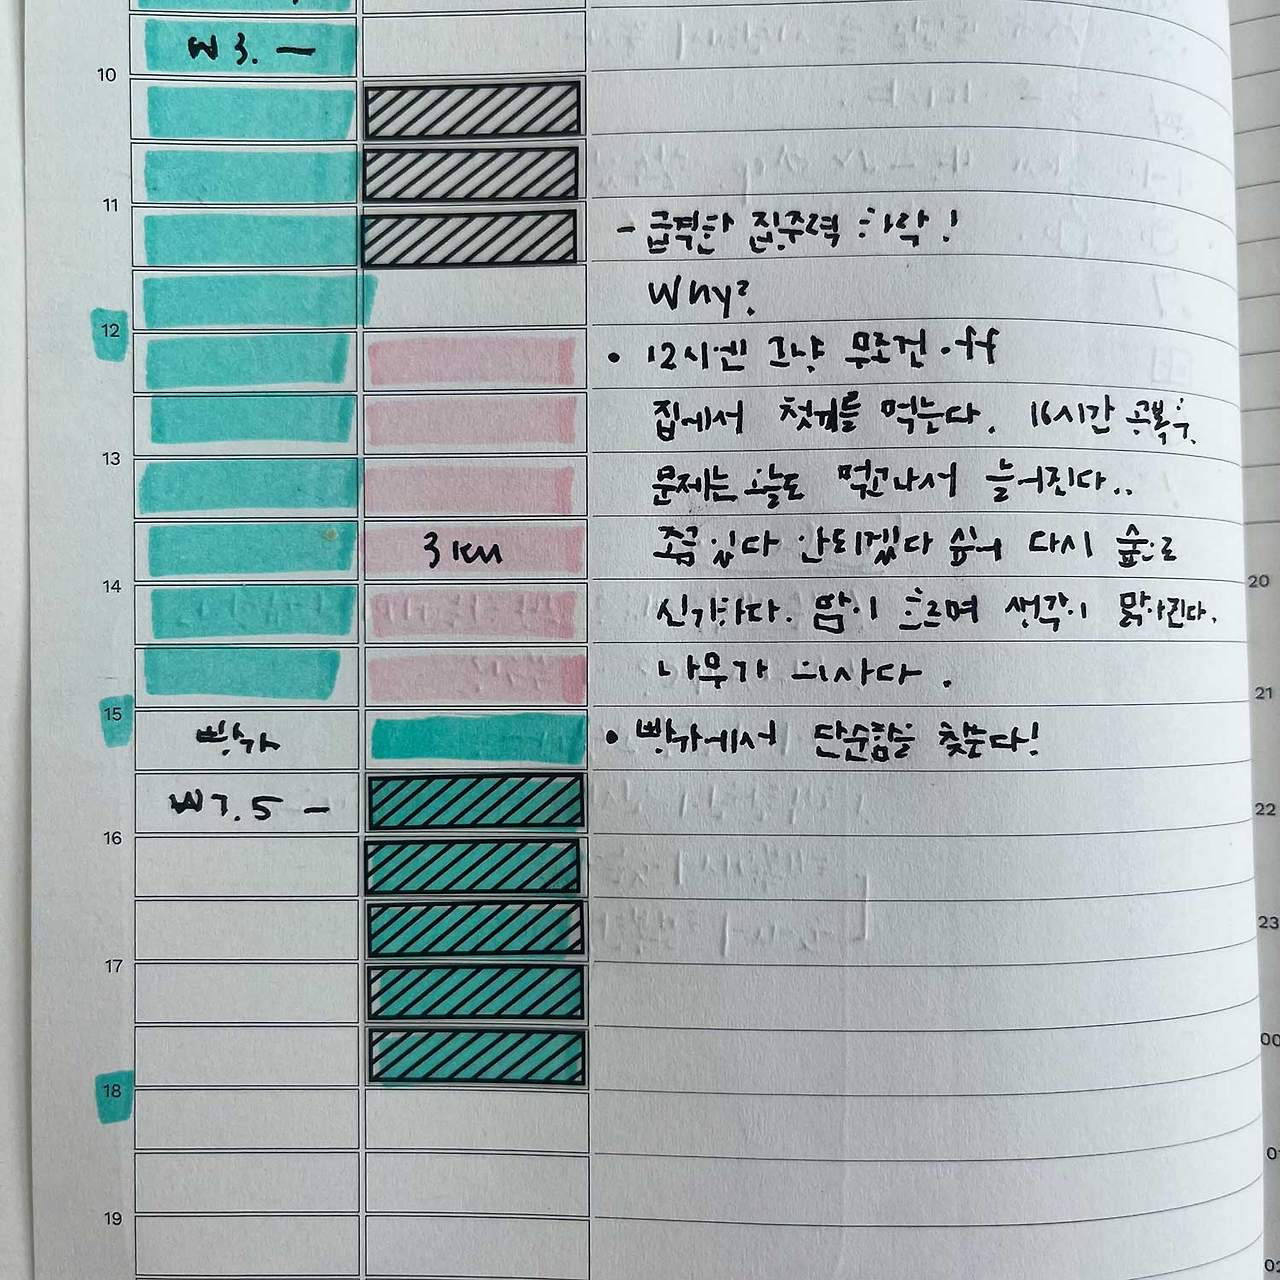 W 3. —
10
11
- 급격한 집중력 하락!
Why?
12
• 12시엔 그냥 무조건 off
집에서 첫끼를 먹는다. 16시간 공복후.
13
문제는 오늘도 먹고나서 늘어진다..
3 km
쪼금 있다 안되겠다 싶어 다시 숲으로
14
20
신기하다. 땀이 흐르며 생각이 맑아진다.
나무가 의사다.
21
15
빵가
• 빵가에서 단순함을 찾는다!
W 7.5 —
22
16
23
17
00
18
01
19
02